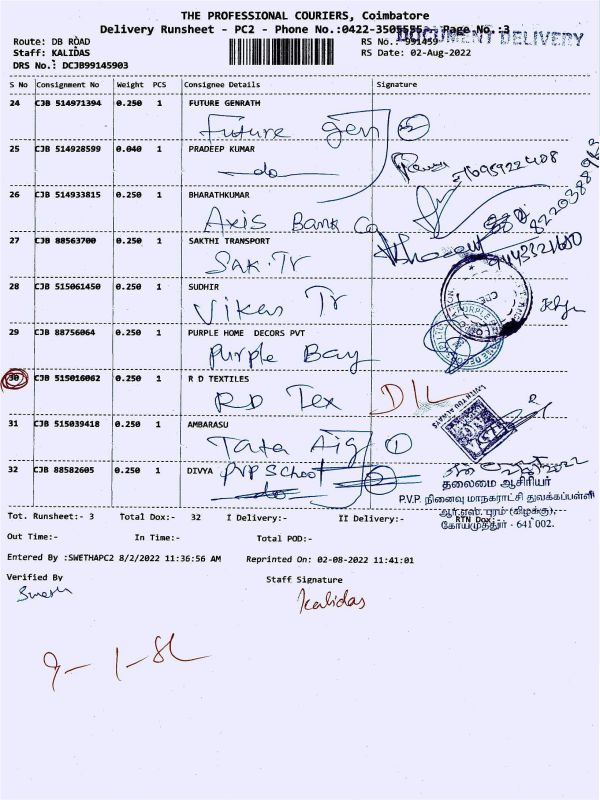 THE PROFESSIONAL COURIERS, Coimbatore
Delivery Runsheet - PC2 - Phone No.:0422-3505555 Page No.:3
DOCUMENT DELIVERY
Route: DB ROAD RS No.: 991459
Staff: KALIDAS RS Date: 02-Aug-2022
DRS No.: DCJB99145903
S No Consignment No Weight PCS Consignee Details Signature
24 CJB 514971394 0.250 1 FUTURE GENRATH
Future gen 2
25 CJB 514928599 0.040 1 PRADEEP KUMAR
do
26 CJB 514933815 0.250 1 BHARATHKUMAR
Axis Bank Co
27 CJB 88563700 0.250 1 SAKTHI TRANSPORT
Sak. Tr
28 CJB 515061450 0.250 1 SUDHIR
Vikas Tr
29 CJB 88756064 0.250 1 PURPLE HOME DECORS PVT
Purple Bay
30 CJB 515016062 0.250 1 R D TEXTILES
RD Tex DIL
31 CJB 515039418 0.250 1 AMBARASU
Tata Aig 1
32 CJB 88582605 0.250 1 DIVYA PVP School
do 2
தலைமை ஆசிரியர்
P.V.P. நினைவு மாநகராட்சி துவக்கப்பள்ளி
ஆர்.எஸ். புரம் (கிழக்கு),
கோயமுத்தூர் - 641 002.
Tot. Runsheet:- 3 Total Dox:- 32 I Delivery:- II Delivery:- RTN Dox:-
Out Time:- In Time:- Total POD:-
Entered By :SWETHAPC2 8/2/2022 11:36:56 AM Reprinted On: 02-08-2022 11:41:01
Verified By Staff Signature
Swetha Kalidas